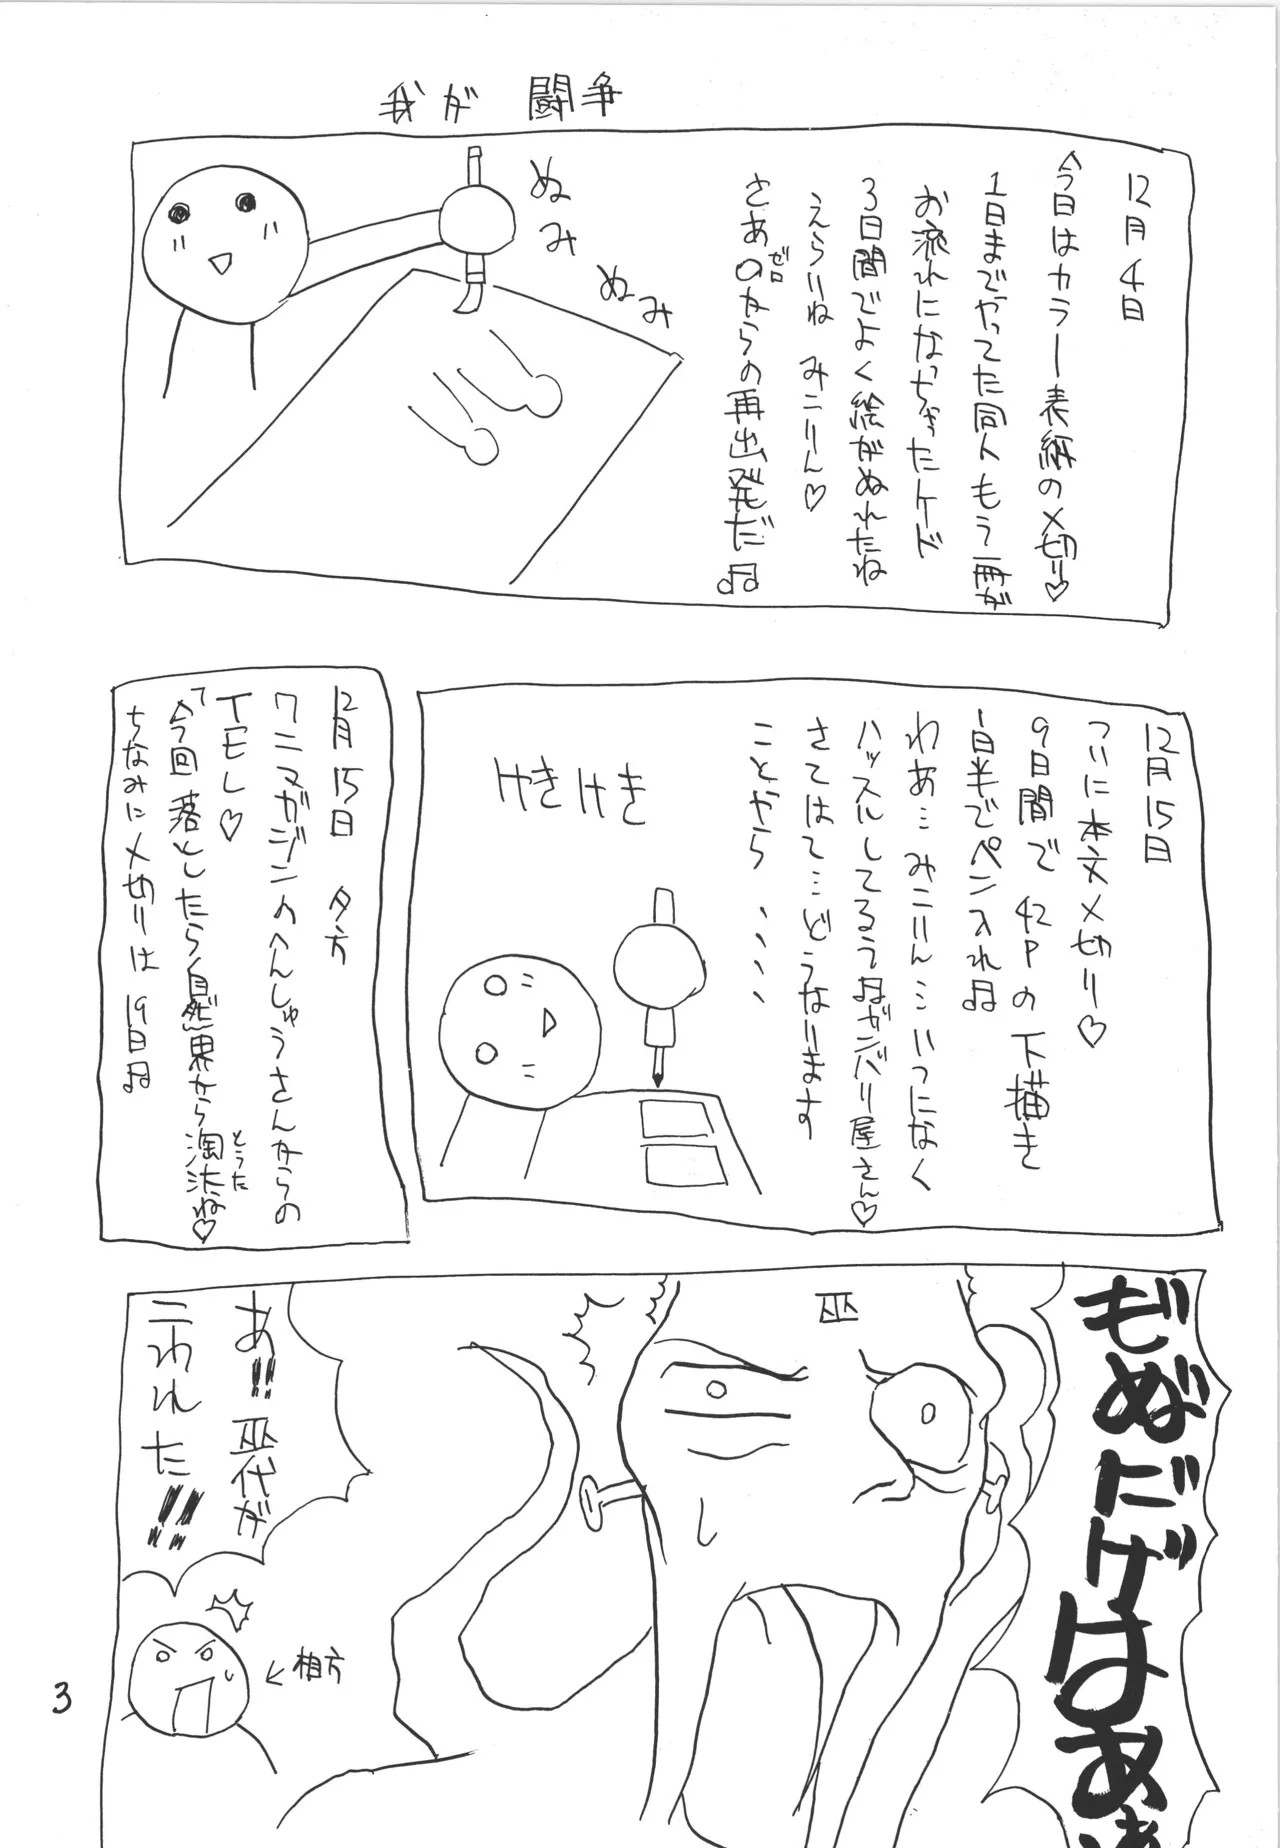 我が 闘争
12月4日
今日はカラー表紙の〆切り♡
1日までやってた同人もう一冊が
お流れになっちゃったケド
3日間でよく絵がぬれたね
えらいね みこりん♡
さあ0からの再出発だ♫
ゼロ
ぬみ
ぬみ
12月15日
ついに本文〆切り♡
9日間で42Pの下描き
1日半でペン入れ♫
わあ… みこりん…いつになく
ハッスルしてるぅ♫ガンバリ屋さん♡
さてはて…どうなります
ことやら、、、、
けきけき
12月15日 夕方
ワニマガジンのへんしゅうさんからの
TEL♡
「今回落としたら自然界から淘汰ね♡
とうた
ちなみに〆切りは19日♫
もぬだげはあ
巫
あ!!巫代が
こわれた!!
←相方
3